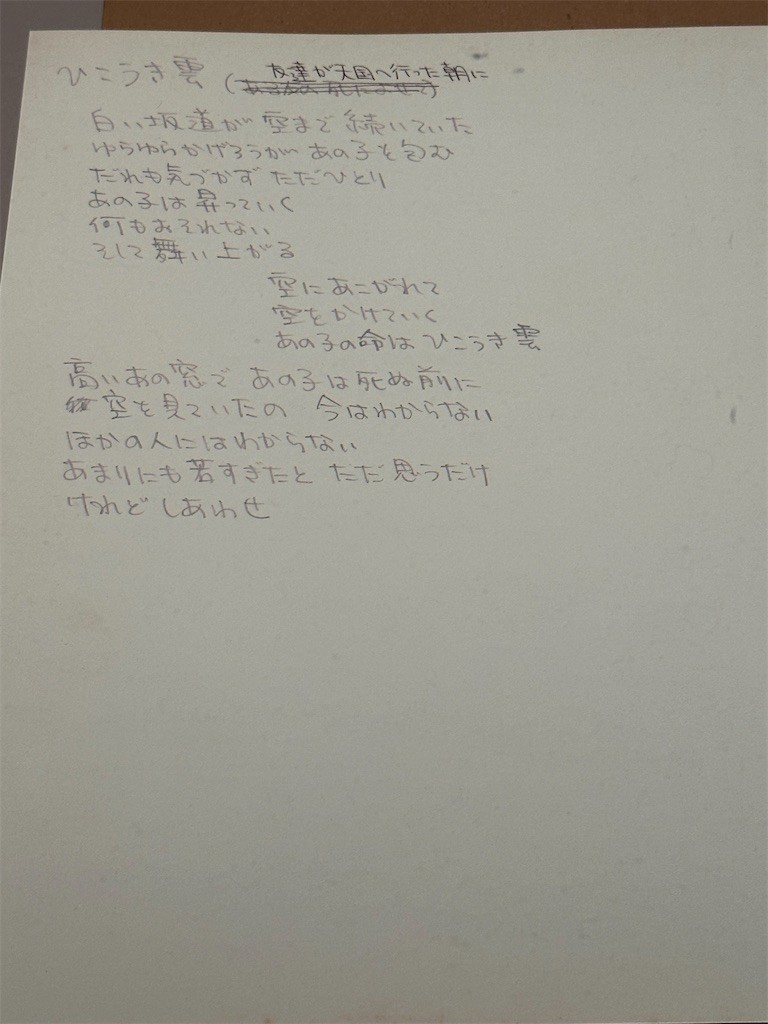 ひこうき雲
友達が天国へ行った朝に
(ある友の死によせて)
白い坂道が 空まで 続いていた
ゆらゆらかげろうが あの子を包む
だれも気づかず ただひとり
あの子は昇っていく
何もおそれない
そして舞い上がる
空にあこがれて
空をかけていく
あの子の命は ひこうき雲
高いあの窓で あの子は死ぬ前に
空を見ていたの 今はわからない
ほかの人にはわからない
あまりにも若すぎたと ただ思うだけ
けれど しあわせ